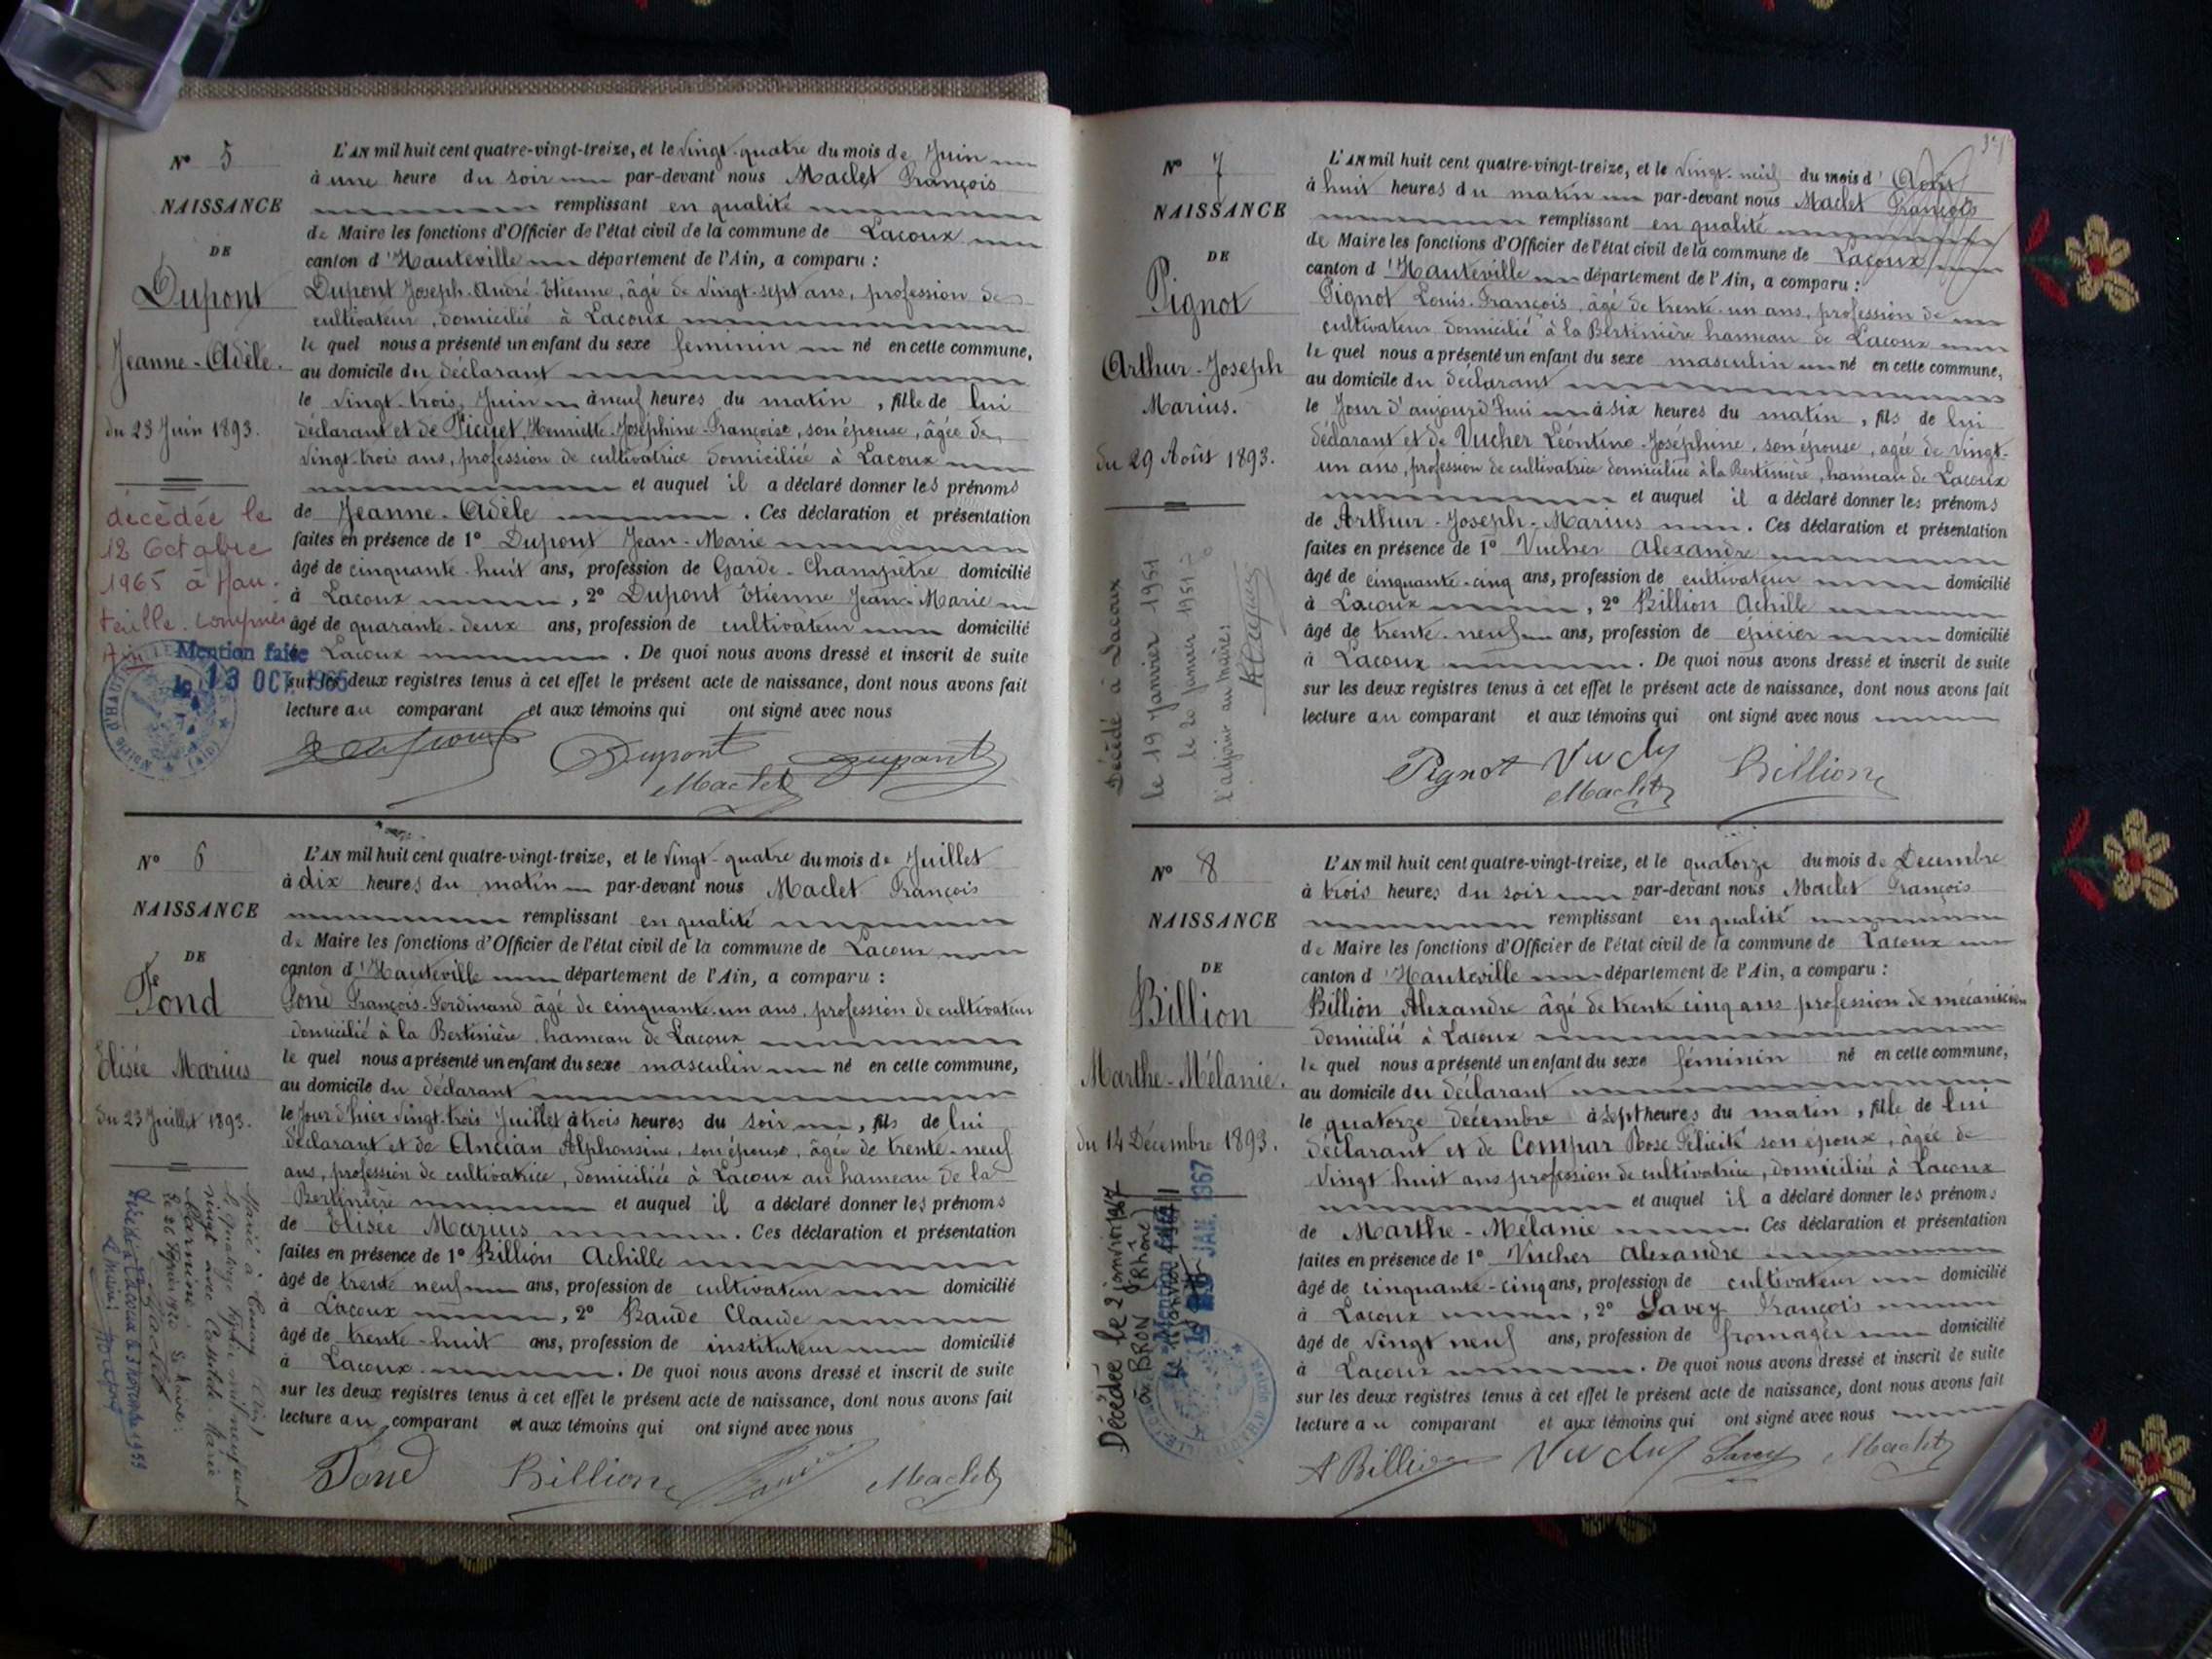 N° 5
NAISSANCE
DE
Dupont
Jeanne-Adèle.
du 23 Juin 1893.
décédée le
12 Octobre
1965 à Hau-
teville-Lompnès
Ain
Mention faite
le 13 OCT. 1965
L'AN mil huit cent quatre-vingt-treize, et le vingt-quatre du mois de Juin
à une heure du soir par-devant nous Maclet François
remplissant en qualité
de Maire les fonctions d'Officier de l'état civil de la commune de Lacoux
canton d'Hauteville département de l'Ain, a comparu :
Dupont Joseph-André-Etienne, âgé de vingt-sept ans, profession de
cultivateur, domicilié à Lacoux
le quel nous a présenté un enfant du sexe féminin né en cette commune,
au domicile du déclarant
le vingt-trois Juin à neuf heures du matin, fille de lui
déclarant et de Picquet, Henriette-Joséphine-Françoise, son épouse, âgée de
vingt-trois ans, profession de cultivatrice domiciliée à Lacoux
et auquel il a déclaré donner les prénoms
de Jeanne-Adèle. Ces déclaration et présentation
faites en présence de 1° Dupont Jean-Marie
âgé de cinquante-huit ans, profession de Garde-Champêtre domicilié
à Lacoux, 2° Dupont Etienne Jean-Marie
âgé de quarante-deux ans, profession de cultivateur domicilié
à Lacoux. De quoi nous avons dressé et inscrit de suite
sur les deux registres tenus à cet effet le présent acte de naissance, dont nous avons fait
lecture au comparant et aux témoins qui ont signé avec nous
Dupont Dupont Dupont
Maclet
N° 6
NAISSANCE
DE
Fond
Elisée Marius
du 23 Juillet 1893.
L'AN mil huit cent quatre-vingt-treize, et le vingt-quatre du mois de Juillet
à dix heures du matin par-devant nous Maclet François
remplissant en qualité
de Maire les fonctions d'Officier de l'état civil de la commune de Lacoux
canton d'Hauteville département de l'Ain, a comparu :
Fond François-Ferdinand âgé de cinquante-un ans, profession de cultivateur
domicilié à la Bertinière hameau de Lacoux
le quel nous a présenté un enfant du sexe masculin né en cette commune,
au domicile du déclarant
le Jour d'hier vingt-trois Juillet à trois heures du soir, fils de lui
déclarant et de Ancian Alphonsine, son épouse, âgée de trente-neuf
ans, profession de cultivatrice, domiciliée à Lacoux au hameau de la
Bertinière et auquel il a déclaré donner les prénoms
de Elisée Marius. Ces déclaration et présentation
faites en présence de 1° Billion Achille
âgé de trente neuf ans, profession de cultivateur domicilié
à Lacoux, 2° Baude Claude
âgé de trente-huit ans, profession de instituteur domicilié
à Lacoux. De quoi nous avons dressé et inscrit de suite
sur les deux registres tenus à cet effet le présent acte de naissance, dont nous avons fait
lecture au comparant et aux témoins qui ont signé avec nous
Fond Billion Maclet
Marié à (Ain)
le quatorze neuf cent
vingt avec Marie
Le Maire:
Maclet
Décédé à Lacoux le 3 novembre 1959
N° 7
NAISSANCE
DE
Pignot
Arthur-Joseph
Marius.
du 29 Août 1893.
Décédé à Lacoux
le 19 Janvier 1951
le 20 Janvier 1951
l'adjoint au maire:
L'AN mil huit cent quatre-vingt-treize, et le vingt-neuf du mois d'Août
à huit heures du matin par-devant nous Maclet François
remplissant en qualité
de Maire les fonctions d'Officier de l'état civil de la commune de Lacoux
canton d'Hauteville département de l'Ain, a comparu :
Pignot Louis-François, âgé de trente-un ans, profession de
cultivateur domicilié à la Bertinière hameau de Lacoux
le quel nous a présenté un enfant du sexe masculin né en cette commune,
au domicile du déclarant
le Jour d'aujourd'hui à six heures du matin, fils de lui
déclarant et de Vucher Léontine-Joséphine, son épouse, âgée de vingt-
un ans, profession de cultivatrice domiciliée à la Bertinière, hameau de Lacoux
et auquel il a déclaré donner les prénoms
de Arthur-Joseph-Marius. Ces déclaration et présentation
faites en présence de 1° Vucher Alexandre
âgé de cinquante-cinq ans, profession de cultivateur domicilié
à Lacoux, 2° Billion Achille
âgé de trente-neuf ans, profession de épicier domicilié
à Lacoux. De quoi nous avons dressé et inscrit de suite
sur les deux registres tenus à cet effet le présent acte de naissance, dont nous avons fait
lecture au comparant et aux témoins qui ont signé avec nous
Pignot Vucher Billion
Maclet
N° 8
NAISSANCE
DE
Billion
Marthe-Mélanie.
du 14 Décembre 1893.
Décédée le 2 janvier 1967
à BRON (Rhône)
JAN. 1967
L'AN mil huit cent quatre-vingt-treize, et le quatorze du mois de Décembre
à trois heures du soir par-devant nous Maclet François
remplissant en qualité
de Maire les fonctions d'Officier de l'état civil de la commune de Lacoux
canton d'Hauteville département de l'Ain, a comparu :
Billion Alexandre âgé de trente cinq ans profession de mécanicien
domicilié à Lacoux
le quel nous a présenté un enfant du sexe féminin né en cette commune,
au domicile du déclarant
le quatorze décembre à sept heures du matin, fille de lui
déclarant et de Compar Rose Félicité son époux, âgée de
vingt huit ans profession de cultivatrice, domiciliée à Lacoux
et auquel il a déclaré donner les prénoms
de Marthe-Mélanie. Ces déclaration et présentation
faites en présence de 1° Vucher Alexandre
âgé de cinquante-cinq ans, profession de cultivateur domicilié
à Lacoux, 2° Savey François
âgé de vingt neuf ans, profession de fromager domicilié
à Lacoux. De quoi nous avons dressé et inscrit de suite
sur les deux registres tenus à cet effet le présent acte de naissance, dont nous avons fait
lecture au comparant et aux témoins qui ont signé avec nous
A Billion Vucher Savey Maclet